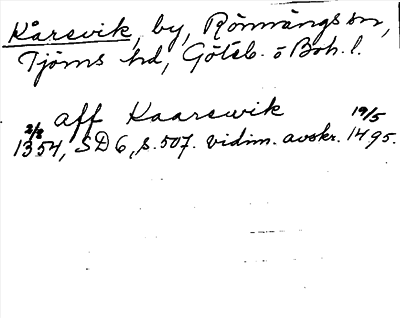 Kårsvik, by, Rönnängs sn,
Tjörns hd, Göteb. o Boh. l.
aff Kaarswik
2/8 1354, SD 6, s. 507. vidim. avskr. 19/5 1495.